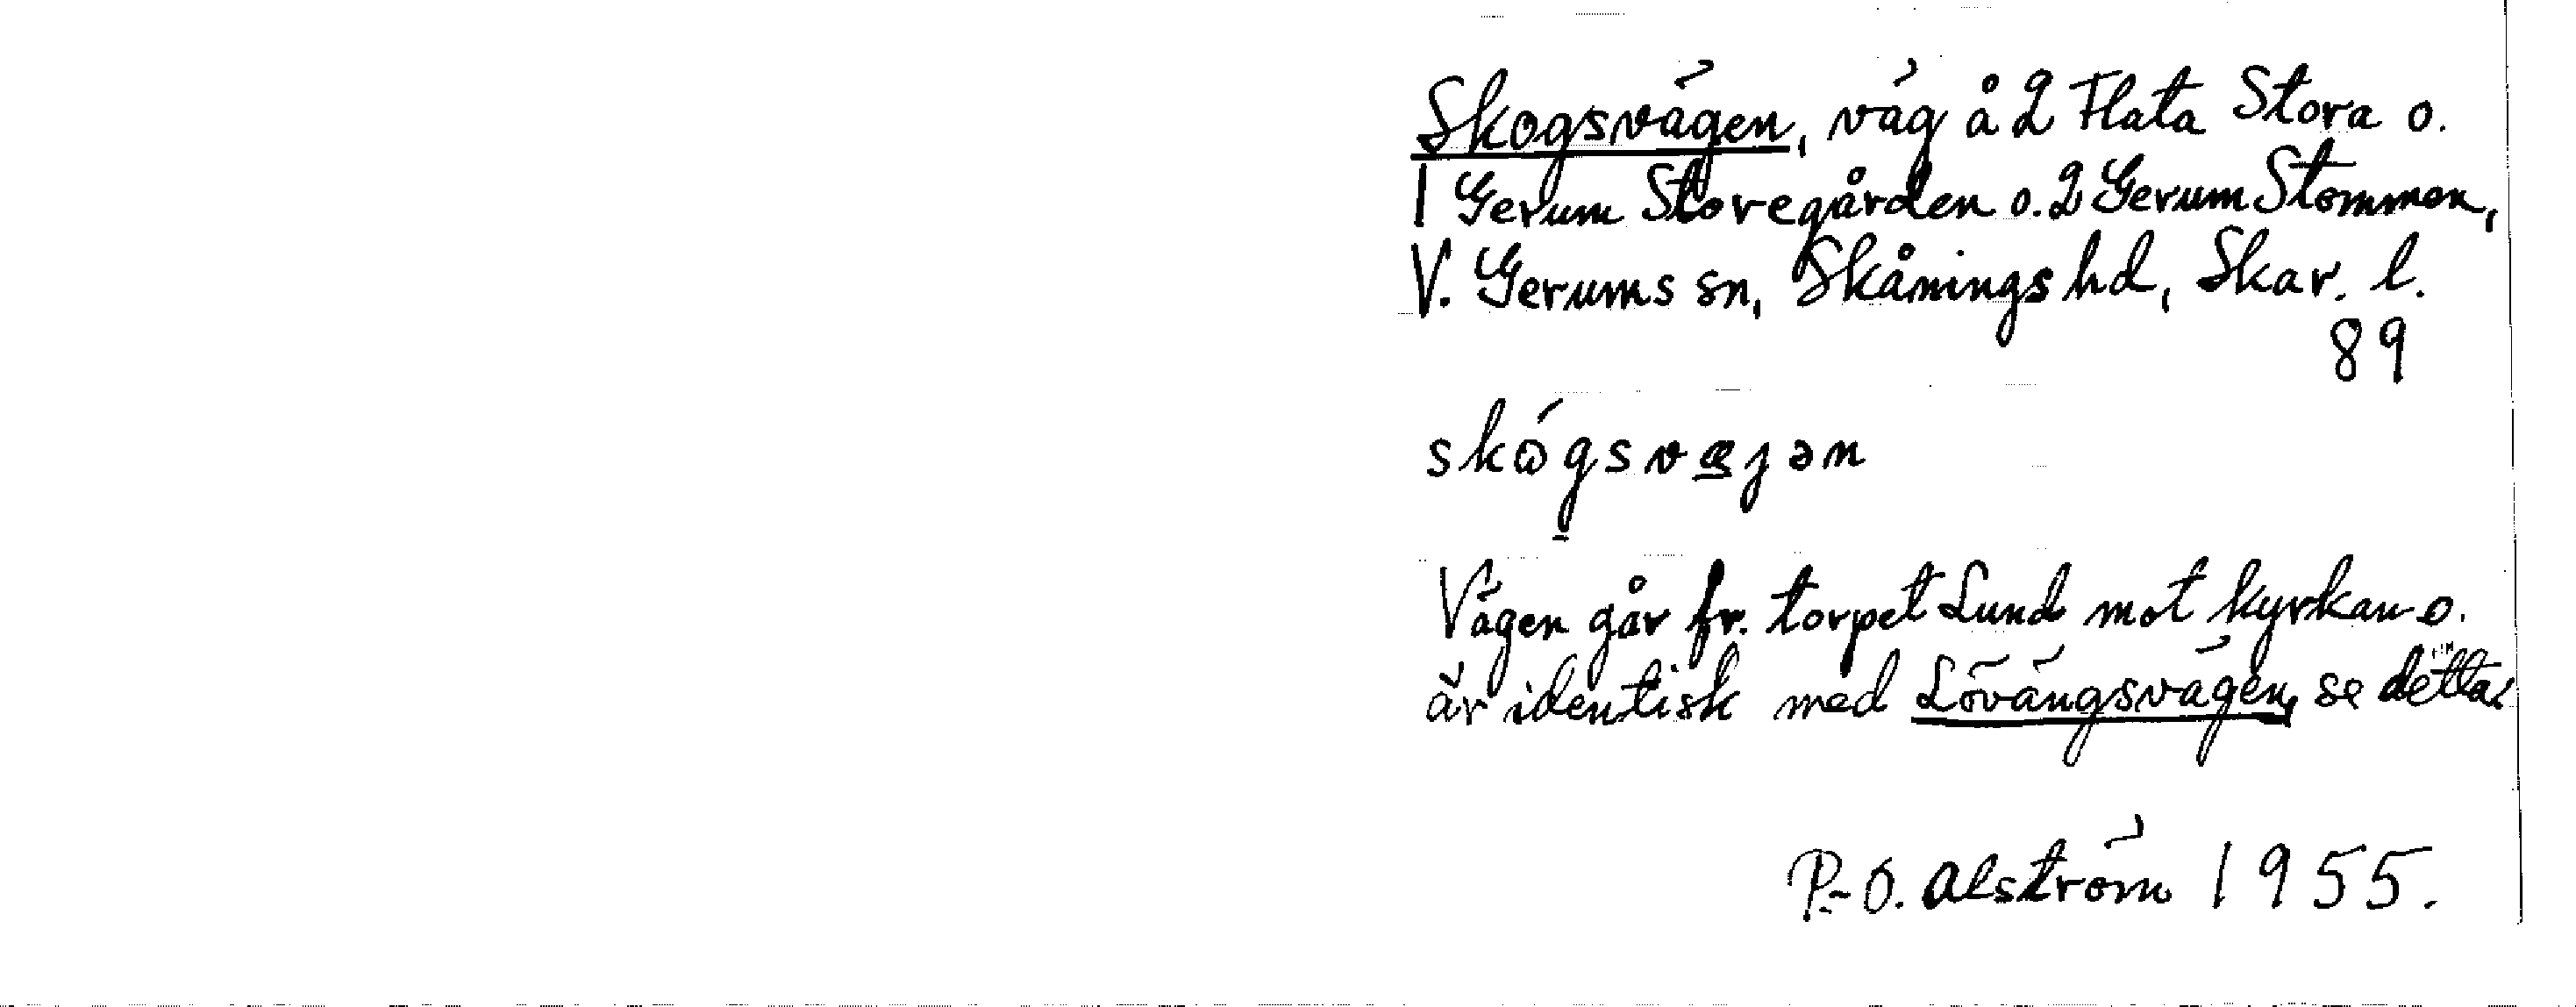 Skogsvägen, väg å 2 Flata Stora o.
1 Gerum Storegården o. 2 Gerum Stommen,
V. Gerums sn, Skånings hd, Skar. l.
89
skógsvæjən
Vägen går fr. torpet Lund mot kyrkan o.
är identisk med Lövängsvägen, se detta.
P.-O. Alström 1955.